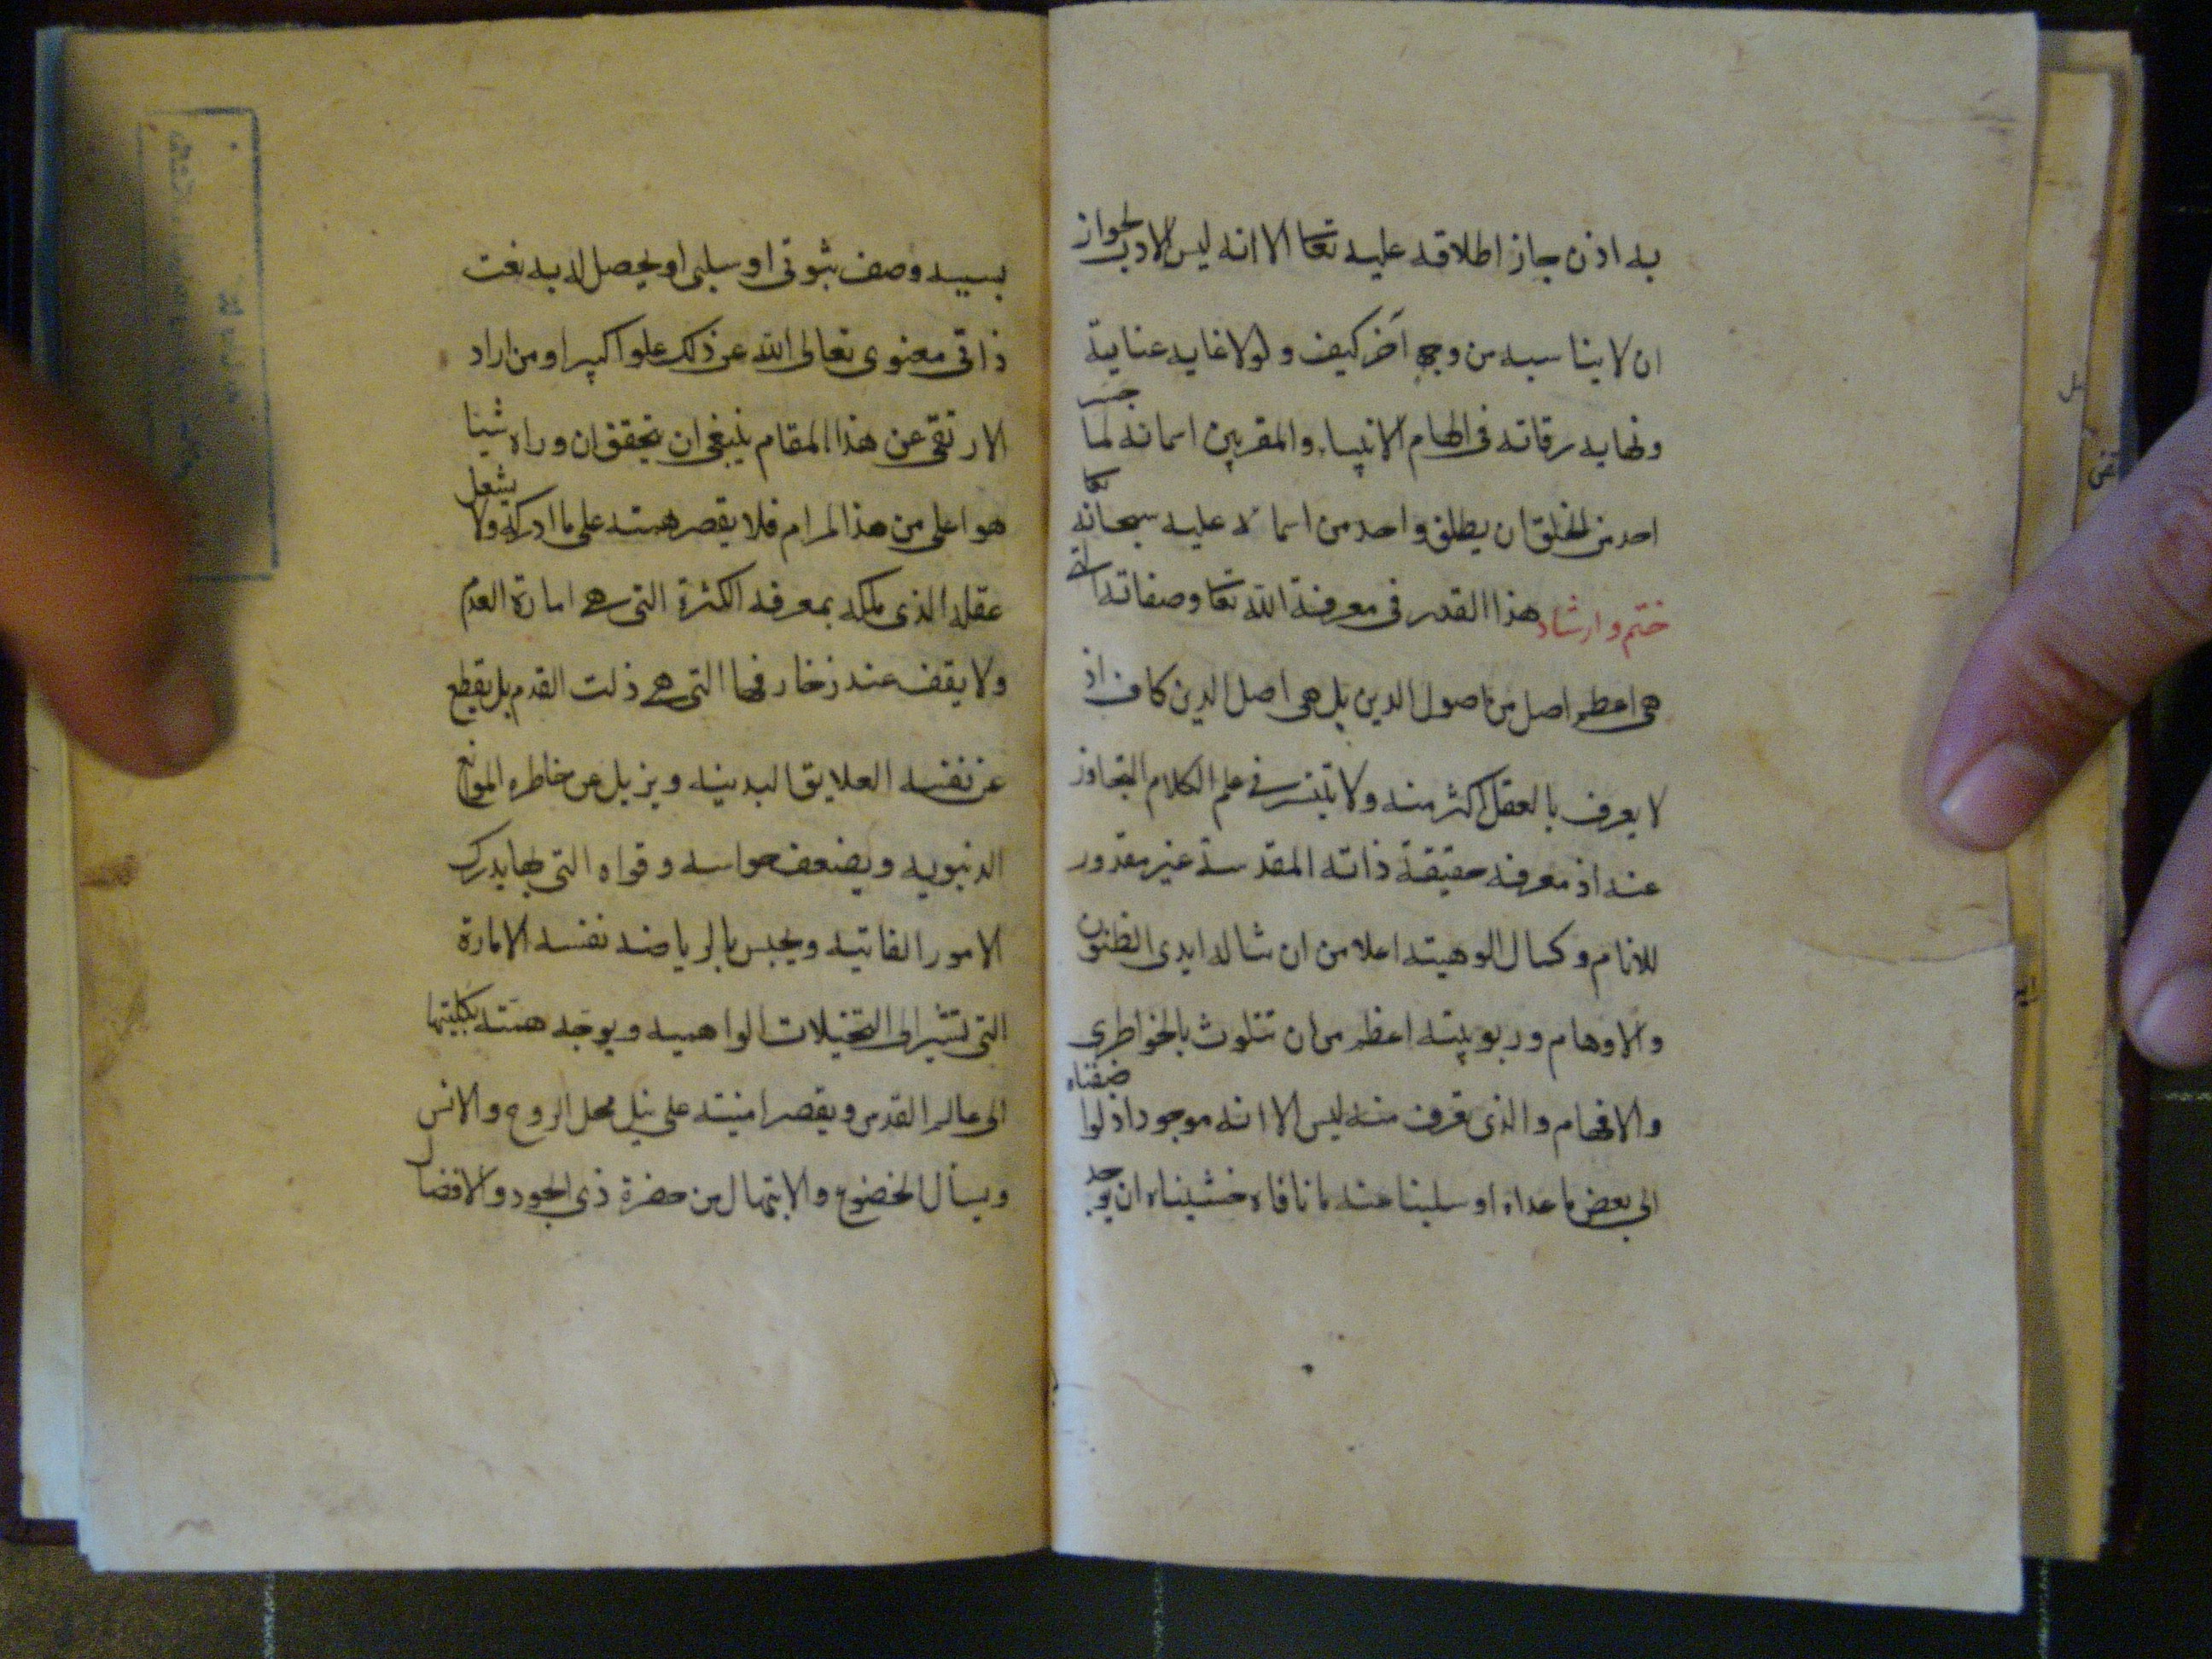 به اذن جاز اطلاقه عليه تعا الا انه ليس الادب لجواز
ان لا يناسبه من وجه اخر كيف ولولا غايه عناية
ونهايه رفاته فى الهام الانبياء والمقربين اسمائه لما جسر
احد من الخلق ان يطلق واحد من اسمائه عليه سبحانه تعا
ختم وارشاد هذا القدر فى معرفة الله تعا وصفاته التى
هى اعظم اصل من اصول الدين بل هى اصل الدين كاف اذ
لا يعرف بالعقل اكثر منه ولا يتيسر فى علم الكلام التجاوز
عنه اذ معرفه حقيقة ذاته المقدسة غير مقدور
للانام وكمال الوهيته اعلا من ان تناله ايدى الظنون
والاوهام وربوبيته اعظم من ان تتلوث بالخواطرى
والافهام والذى تعرف منه ليس الا انه موجود اذ لو اضفناه
الى بعض ما عداه او سلبنا عنه ما نافاه خشيناه ان يوجد
بسببه وصف ثبوتى او سلبى او يحصل له به نعت
ذاتى معنوى تعالى الله عن ذلك علوا كبيرا ومن اراد
الارتقى عن هذا المقام ينبغى ان يتحقق ان وراه شيئا
هو اعلى من هذ المرام فلا يقصر همته على ما ادركه ولا يشغل
عقله الذى ملكه بمعرفه الكثرة التى هى امارة العدم
ولا يقف عند زخارفها التى هى ذلت القدم بل يقطع
عن نفسه العلايق البدنيه ويزيل عن خاطره الموانع
الدنيويه ويضعف حواسه وقواه التى بها يدرك
الامور الفانيه ويحبس بالرياضه نفسه الامارة
التى تشير الى التخيلات الواهيه ويوجه همته بكليتها
الى عالم القدس ويقصر امنيته على نيل محل الروح والانس
ويسأل الخضوع والابتهال من حضرة ذى الجود والافضال